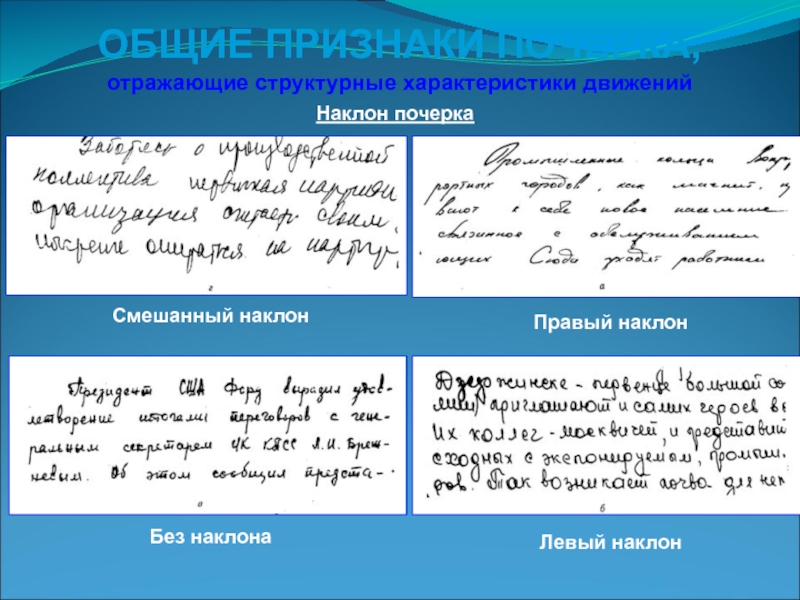 ОБЩИЕ ПРИЗНАКИ ПОЧЕРКА,
отражающие структурные характеристики движений
Наклон почерка
Заботясь о производственной
коллектива первичная партийн
организация считает своим
искренне опирается на партгру
г
Смешанный наклон
Промышленные кольца вокру
портных городов, как магнит,
вают к себе новое население
связанное с обслуживанием
ющих Сюда уходят работники
а
Правый наклон
Президент США Форд выразил удов-
летворение итогами переговоров с гене-
ральным секретарем ЦК КПСС Л.И. Бреж-
невым. Об этом сообщил предста-
Без наклона
Дзержинске - первенце большой
приглашают и самих героев
Их коллег - москвичей, и представи
сходных с экспонируемым, промыш
Так возникает почва для
б
Левый наклон